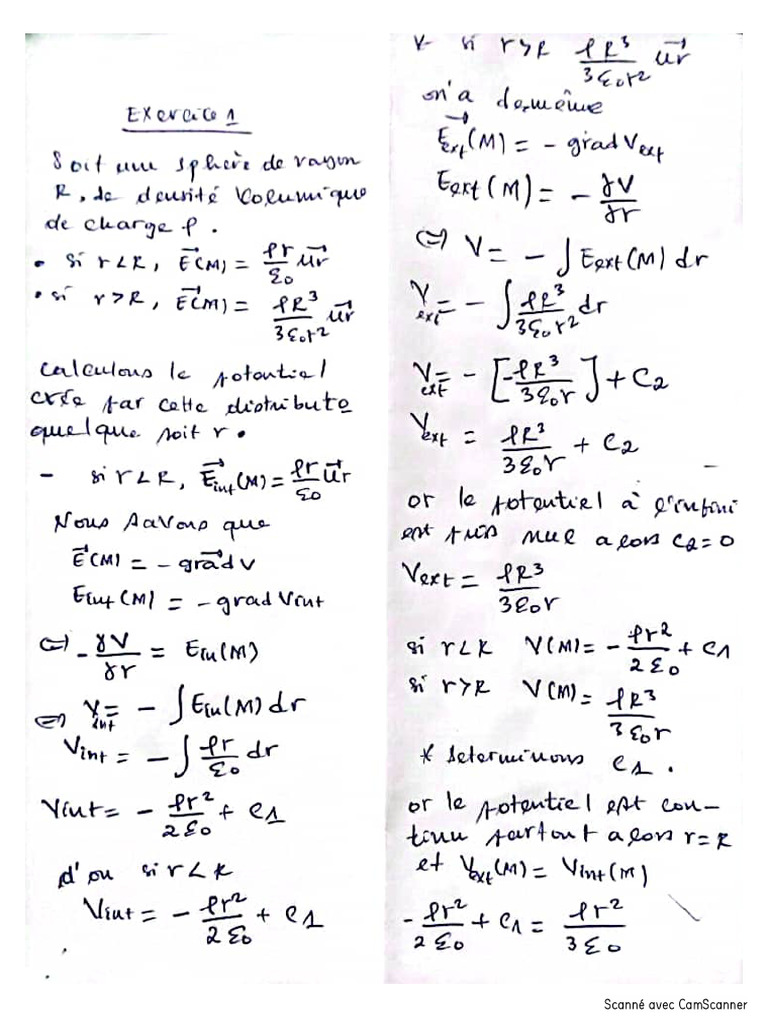 Exercice 1
Soit une sphère de rayon
R, de densité Volumique
de charge ρ.
• si r<R, E⃗(M) = ρr/ε₀ u⃗r
• si r>R, E⃗(M) = ρR³/3ε₀r² u⃗r
Calculons le potentiel
crée par cette distributo
quelque soit r.
- si r<R, E⃗int(M) = ρr/ε₀ u⃗r
Nous savons que
E⃗(M) = - gra⃗d V
Eint(M) = - grad Vint
⇔ - ∂V/∂r = Ein(M)
⇔ Vint = - ∫ Ein(M) dr
Vint = - ∫ ρr/ε₀ dr
Vint = - ρr²/2ε₀ + C1
d'ou si r<R
Vint = - ρr²/2ε₀ + C1
* si r>R ρR³/3ε₀r² u⃗r
on'a de même
E⃗ext(M) = - grad Vext
Eext(M) = - ∂V/∂r
⇔ V = - ∫ Eext(M) dr
Vext = - ∫ ρR³/3ε₀r² dr
Vext = - [-ρR³/3ε₀r] + C2
Vext = ρR³/3ε₀r + C2
or le potentiel à l'infini
est nul alors C2=0
Vext = ρR³/3ε₀r
si r<R V(M) = - ρr²/2ε₀ + C1
si r>R V(M) = ρR³/3ε₀r
* determinons C1.
or le potentiel est con-
tinu partout alors r=R
et Vext(M) = Vint(M)
- ρr²/2ε₀ + C1 = ρr²/3ε₀
Scanné avec CamScanner